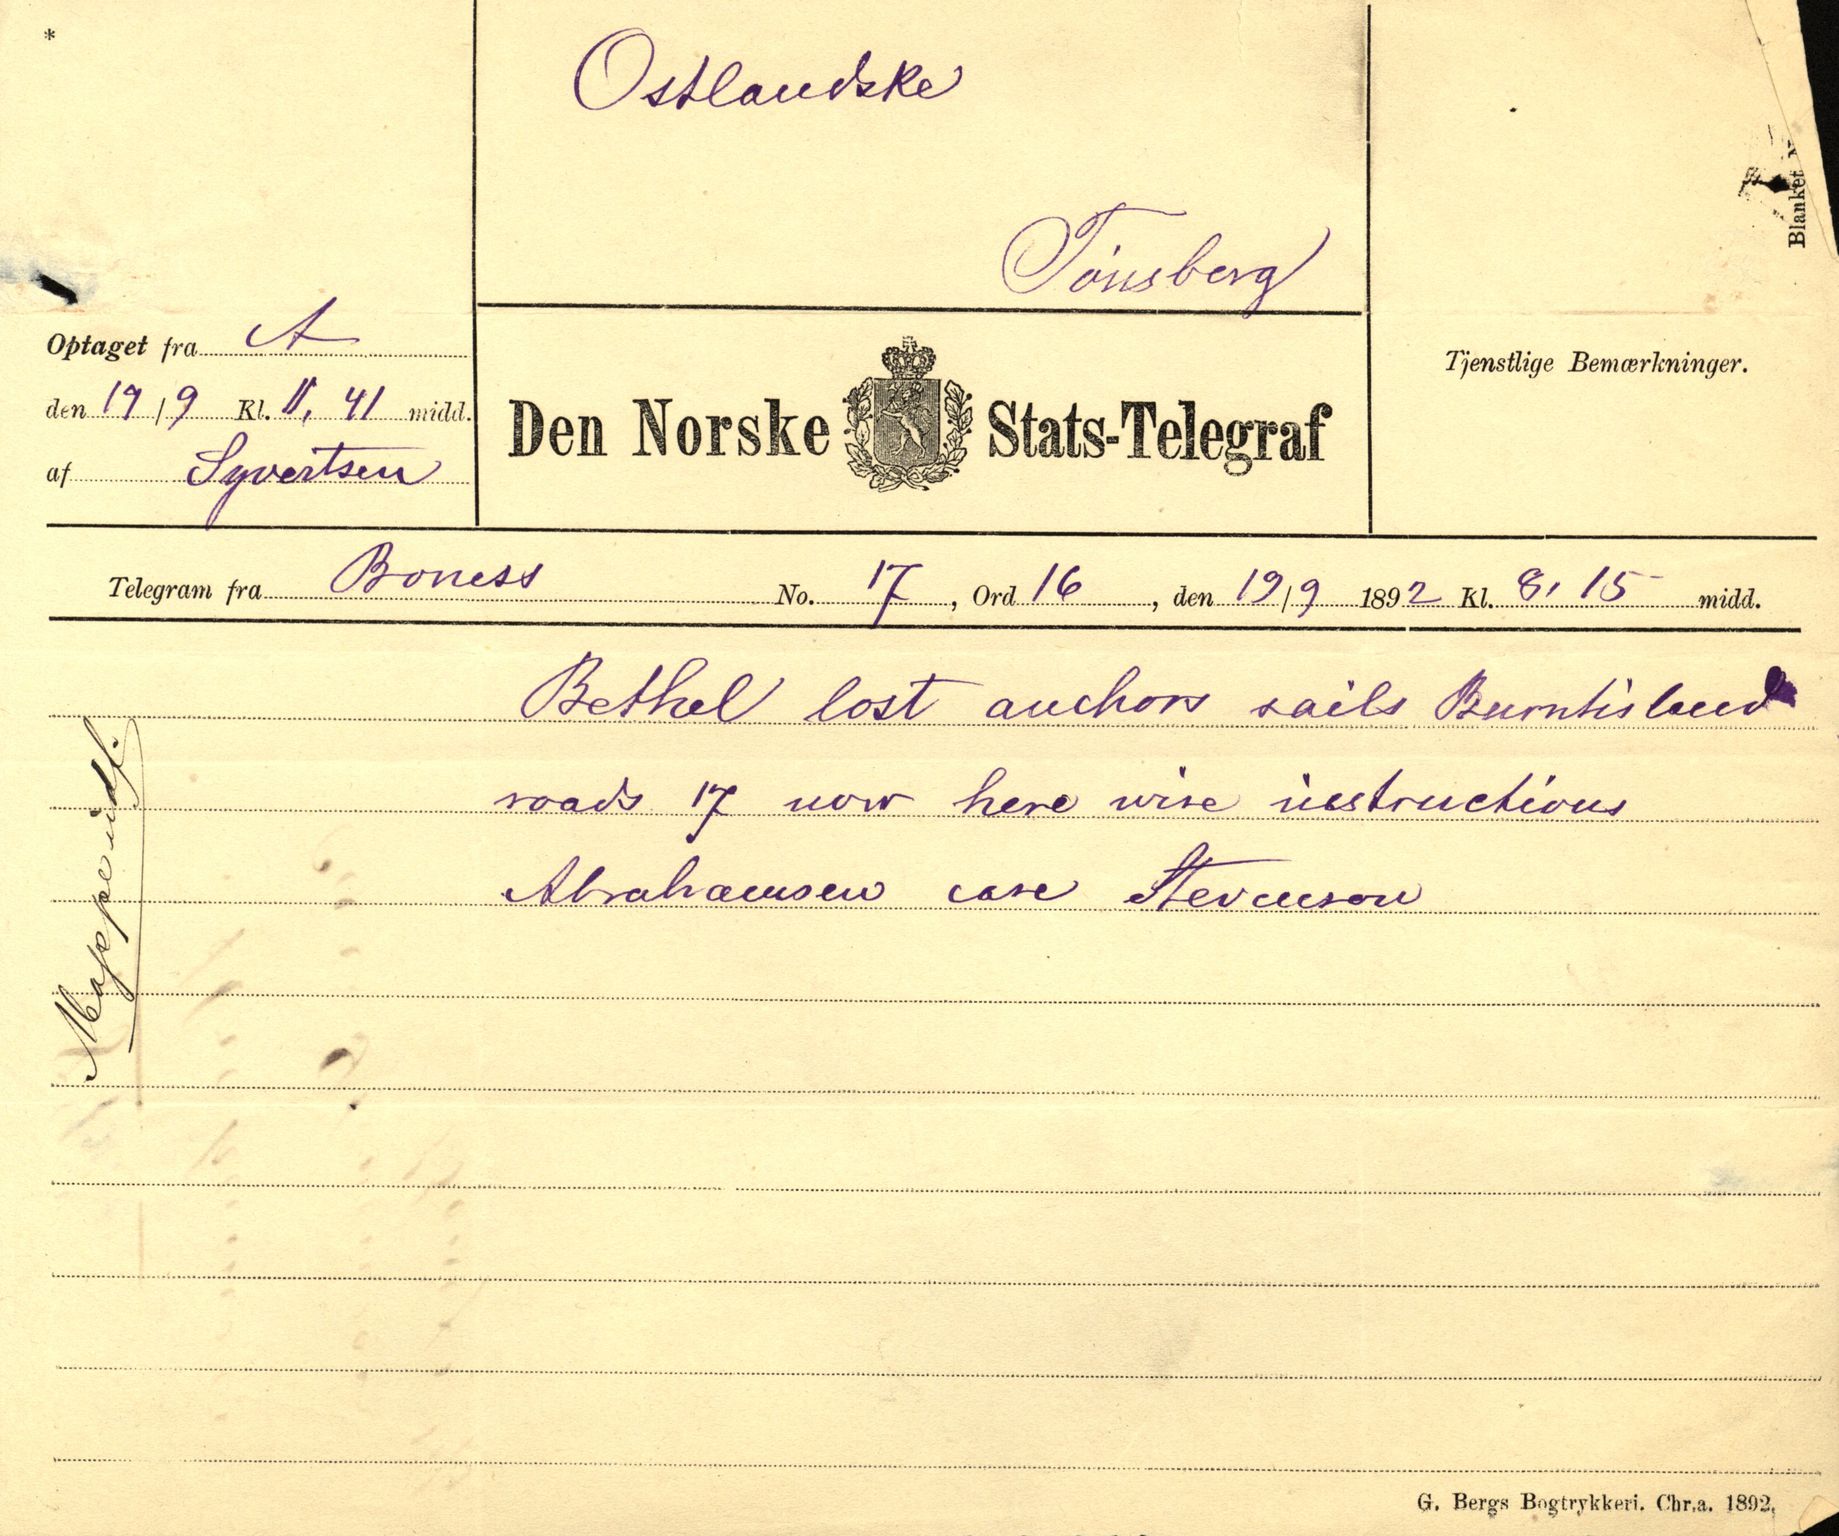 *
Ostlandske
Tönsberg
Blanket
Optaget fra A
den 19/9 Kl. 11,41 midd.
af Syvertsen
Den Norske Stats-Telegraf
Tjenstlige Bemærkninger.
Telegram fra Boness No. 17, Ord 16, den 19/9 1892 Kl. 8,15 midd.
Bethel lost anchors sails Burntisland
roads 17 now here wire instructions
Abrahamsen care Stevenson
G. Bergs Bogtrykkeri. Chr.a. 1892.